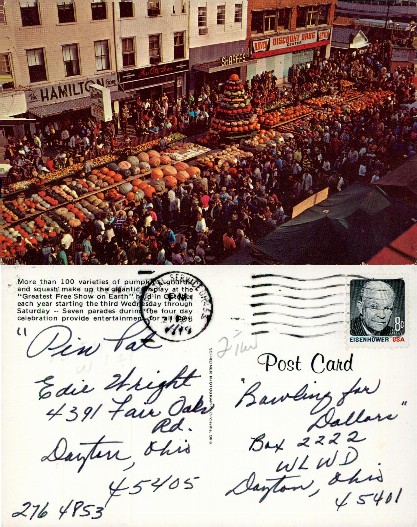 THE HAMILTON
DISCOUNT DRUG
More than 100 varieties of pumpkins, gourds
and squash make up the gigantic display at the
"Greatest Free Show on Earth" held in
each year starting the third Wednesday through
Saturday -- Seven parades during the four day
celebration provide entertainment for
PM
EISENHOWER USA
8c
Post Card
"Pin Pat
Edie Wright
4391 Fair Oaks
Rd.
Dayton, Ohio
45405
276 4853
"Bowling for
Dollars"
Box 2222
WLWD
Dayton, Ohio
45401